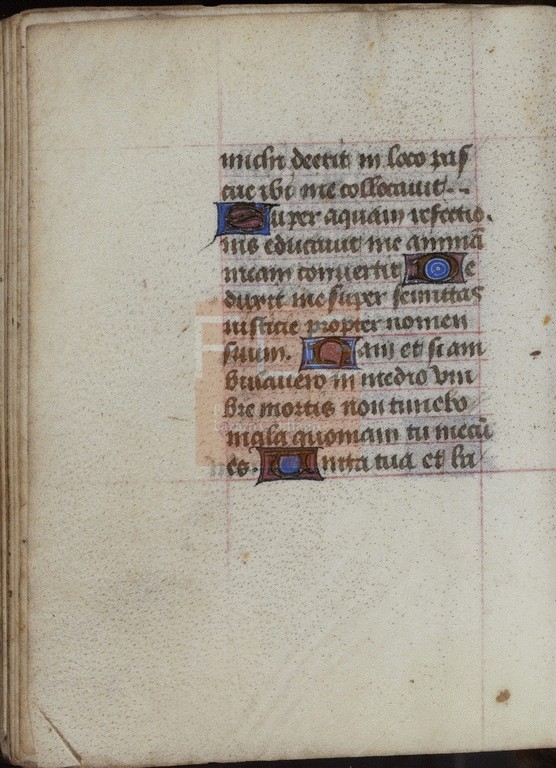 michi deerit in loco pas
cue ibi me collocauit
Super aquam refectio
nis educauit me animā
meam conuertit De
duxit me super semitas
iusticie propter nomen
suum. Nam et si am
bulauero in medio vm
bre mortis non timebo
mala quoniam tu mecū
es. Uirga tua et ba